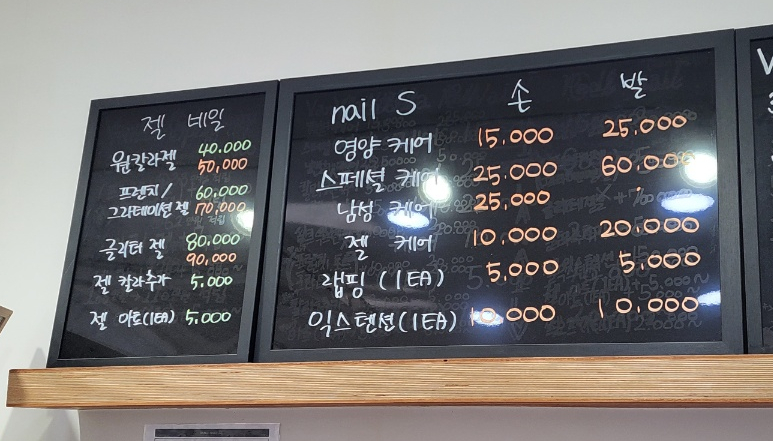 젤 네일
원칼라젤 40,000
50,000
프렌치/ 60,000
그라데이션 젤 70,000
글리터 젤 80,000
90,000
젤 칼라추가 5,000
젤 아트(1EA) 5,000
nail S 손 발
영양 케어 15,000 25,000
스페셜 케어 25,000 60,000
남성 케어 25,000
젤 케어 10,000 20,000
랩핑 (1EA) 5,000 5,000
익스텐션(1EA) 10,000 10,000